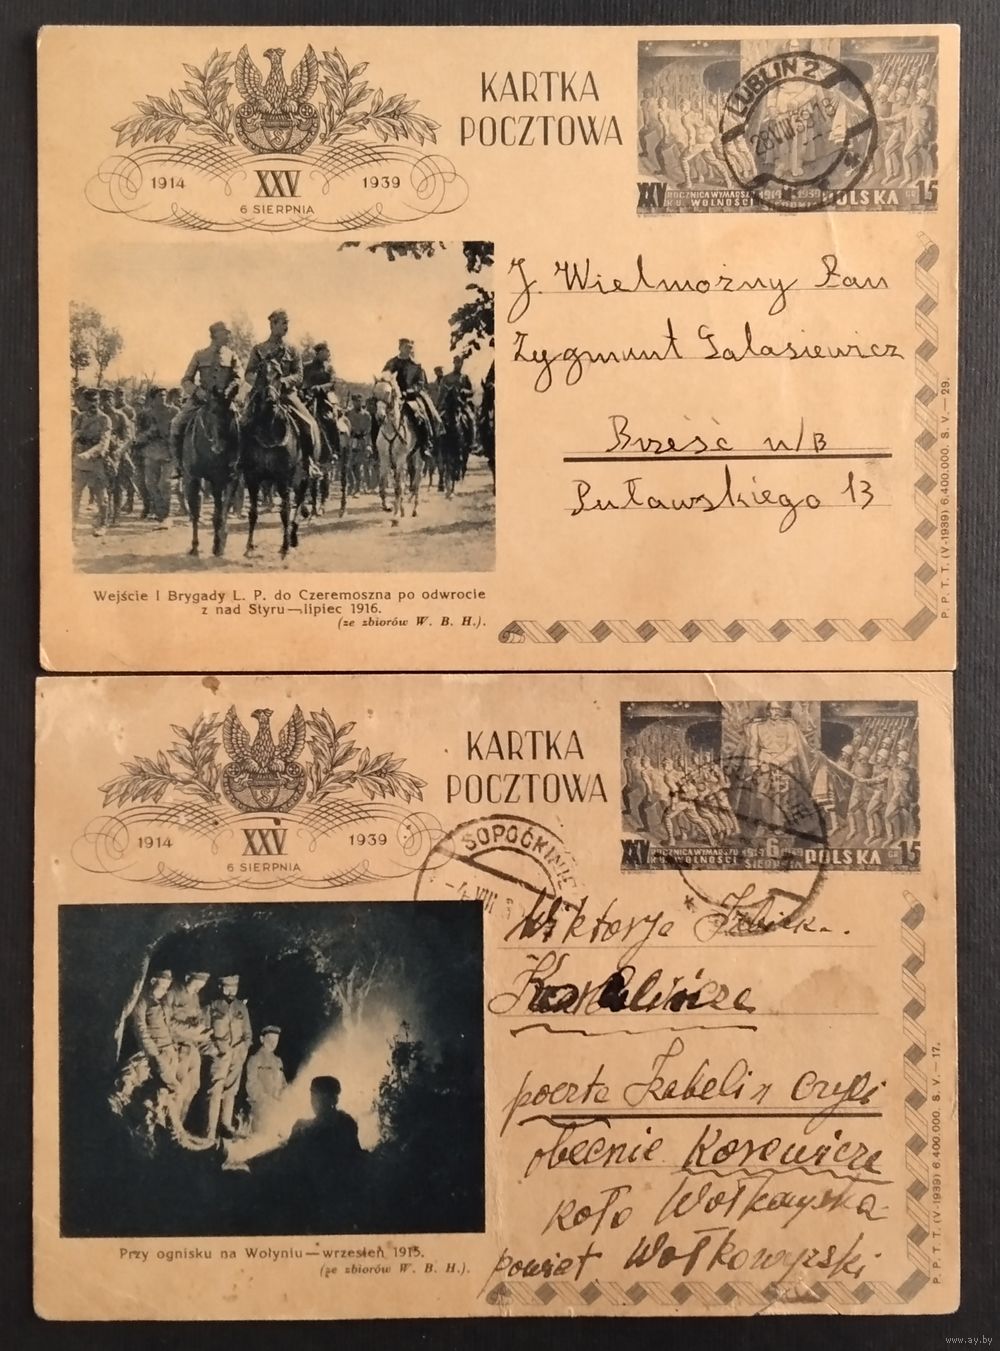 KARTKA
POCZTOWA
1914 XXV 1939
6 SIERPNIA
LUBLIN 2
28 VIII 39 18
XXV ROCZNICA WYMARSZU 1914 1939
KU WOLNOŚCI SIERPNIA POLSKA GR 15
J. Wielmożny Pan
Zygmunt Galasiewicz
Brześć n/B
Puławskiego 13
Wejście I Brygady L. P. do Czeremoszna po odwrocie
z nad Styru—lipiec 1916.
(ze zbiorów W. B. H.).
P. P. T. T. (V-1939) 6.400.000. S. V.—29.
KARTKA
POCZTOWA
1914 XXV 1939
6 SIERPNIA
SOPOĆKINIE
4 VIII
XXV ROCZNICA WYMARSZU 1914 6 1939
KU WOLNOŚCI SIERPNIA POLSKA GR 15
Wiktorja
poczta Izabelin
obecnie Korewicze
koło Wołkowyska
powiet Wołkowyzski
Przy ognisku na Wołyniu—wrzesień 1915.
(ze zbiorów W. B. H.).
P. P. T. T. (V-1939) 6.400.000. S. V.—17.
www.ay.by